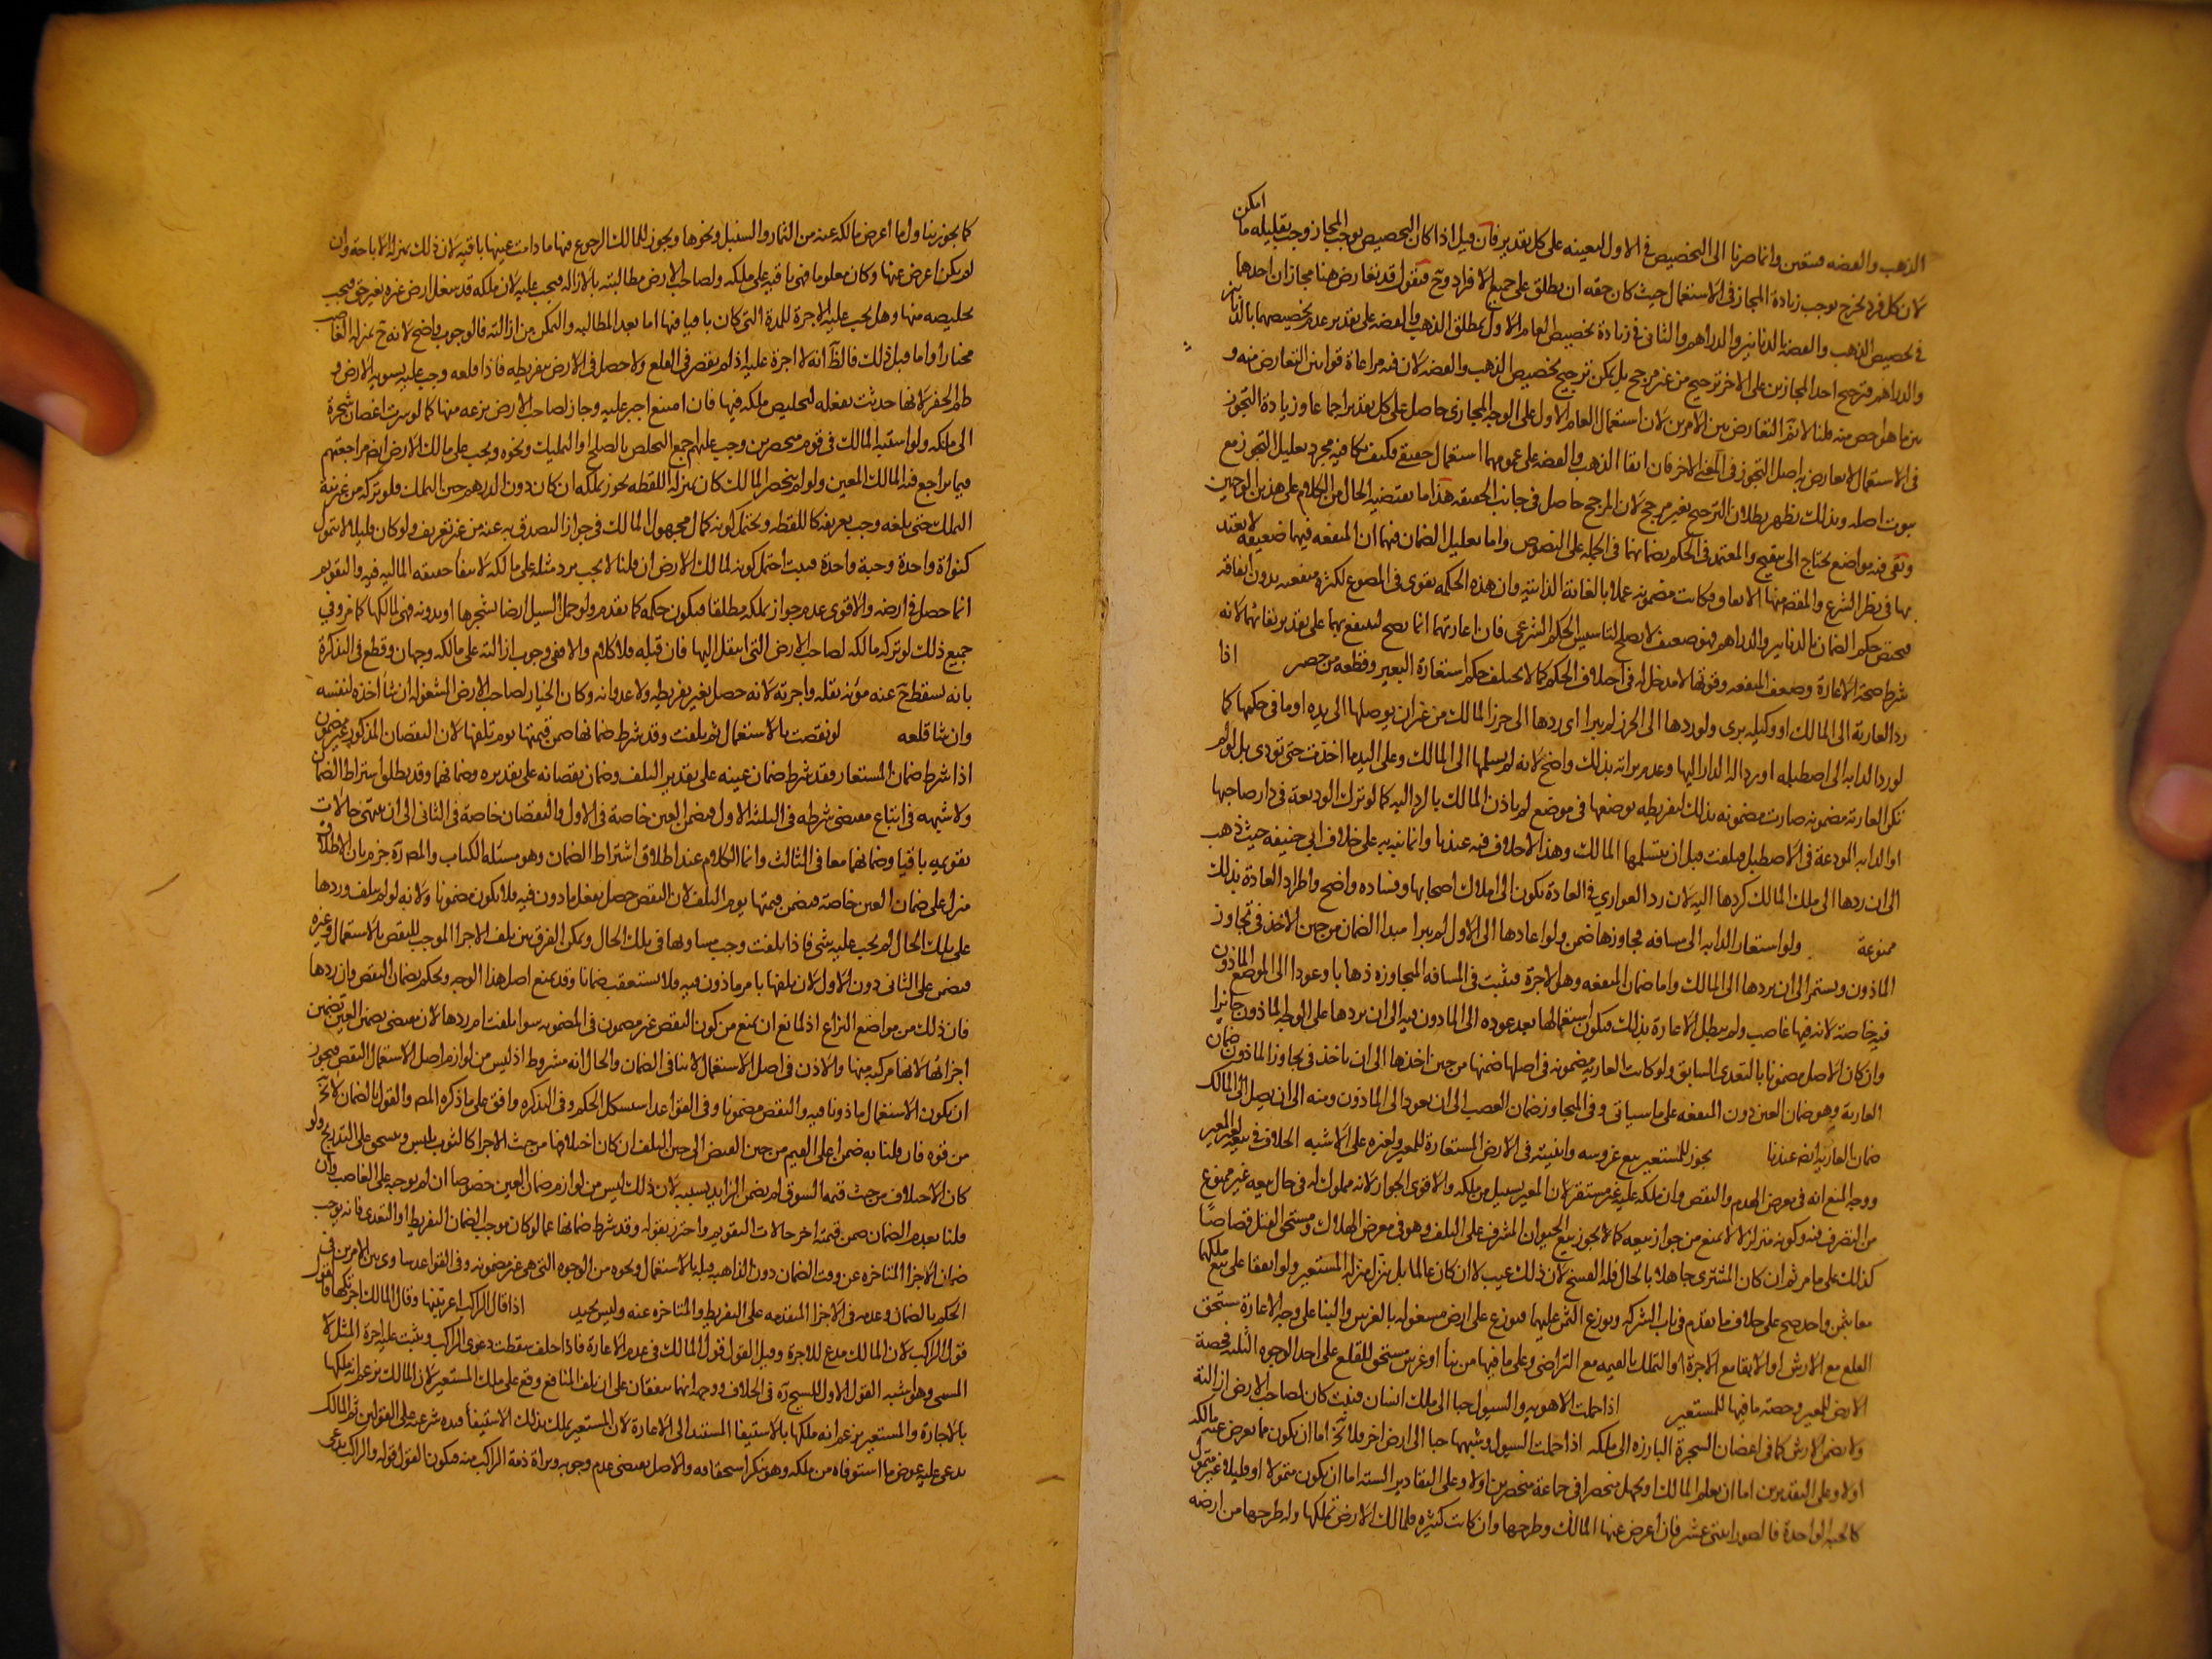 الذهب والفضه متعين وانما صرنا الى التخصيص في الاول لتعينه على كل تقدير فان قيل اذا كان التخصيص يوجب المجاز وجب تقليله ما امكن
لان كل فرد يخرج يوجب زيادة المجاز في الاستعمال حيث كان حقه ان يطلق على جميع الافراد وح فنقول قد تعارض هنا مجازان احدهما
في تخصيص الذهب والفضه بالدنانير والدراهم والثاني في زيادة تخصيص العام الاول بمطلق الذهب والفضه على تقدير عدم تخصيصهما بالدنانير
والدراهم فترجيح احد المجازين على الاخر ترجيح من غير مرجح بل يمكن ترجيح تخصيص الذهب والفضه لان فيه مراعاة قوانين التعارض بينه و
بين ما هو اخص منه قلنا لا نم التعارض بين الامرين لان استعمال العام الاول على الوجه المجازى حاصل على كل تقدير اجماعا وزيادة التجوز
في الاستعمال لا يعارض به اصل التجوز في المعنى الاخر فان ابقا الذهب والفضه على عمومهما استعمال حقيقي فكيف نكافيه بمجرد تقليل التجوز مع
ثبوت اصله وبذلك يظهر بطلان الترجيح بغير مرجح لان المرجح حاصل في جانب الحقيقه هذا ما يقتضيه الحال من الكلام على هذين الوجهين
وبقى فيه مواضع يحتاج الى تنقيح والمعتمد في الحكم بضمانهما في الجمله على النصوص واما تعليل الضمان فيهما ان المنفعه فيهما ضعيفه لا يعتد
بها في نظر الشرع والمقصد منها الانفاق فكانت مضمونه عملا بالغاية الذاتيه وان هذه الحكمه تقوى في المصوغ لكثرة منفعته بدون انفاقه
فيختص حكم الضمان بالدنانير والدراهم فهو ضعيف لا يصلح لتاسيس الحكم الشرعي فان اعارتهما انما تصح لينتفع بهما على تقدير بقائهما لانه
شرط صحة الاعارة وضعف المنفعه وقوتها لا مدخل له في اختلاف الحكم كما لا يختلف حكم استعارة البعير وقطعه من حصير اذا
رد العارية الى المالك او وكيله برى ولو ردها الى الحرز لم يبرا اى ردها الى حرز المالك من غير ان يوصلها الى يده او ما في حكمها كما
لو رد الدابه الى اصطبله او رد الة الدار اليها وعدم براته بذلك واضح لانه لم يسلمها الى المالك وعلى اليد ما اخذت حتى تؤدى بل لو لم
تكن العارية مضمونه صارت مضمونه بذلك لتفريطه بوضعها في موضع لم ياذن المالك بالرد اليه كما لو ترك الوديعة في دار صاحبها
او الدابه المودعة في الاصطبل فتلفت قبل ان يتسلمها المالك وهذا الاخلاف فيه عندنا وانما نبه به على خلاف ابي حنيفه حيث ذهب
الى ان ردها الى ملك المالك كردها اليه لان رد العواري في العادة يكون الى املاك اصحابها وفساده واضح واطراد العادة بذلك
ممنوعة ولو استعار الدابه الى مسافه فجاوزها ضمن ولو اعادها الى الاول لم يبرا مبدا الضمان من حين الاخذ في تجاوز
الماذون ويستمر الى ان يردها الى المالك واما ضمان المنفعه وهو الاجرة فيثبت في المسافه المتجاوزه ذهابا وعودا الى الموضع الماذون
فيه خاصة لانه فيها غاصب ولم يبطل الاعارة بذلك فيكون استعمالها بعد عوده الى الماذون فيه الى ان يردها على الوجه الماذون جائزا
وان كان الاصل مضمونا بالتعدى السابق ولو كانت العارية مضمونه في اصلها ضمنها من حين اخذها الى ان ياخذ في تجاوز الماذون ضمان
العارية وهو ضمان العين دون المنفعه على ما سياتى وفي المتجاوز ضمان الغصب الى ان يعود الى الماذون ومنه الى ان يصل الى المالك
ضمان العارية ايض عندنا يجوز للمستعير بيع غروسه وابنيته في الارض المستعارة للمعير ولغيره على الاشبه الخلاف في بيعه لغير المعير
ووجه المنع انه في معرض الهدم والنقص وان ملكه عليه غير مستقر لان المعير بسبيل من تملكه والاقوى الجواز لانه مملوك له في حال بيعه غير ممنوع
من التصرف فيه وكونه متزلزلا لا يمنع من جواز بيعه كما لا يجوز بيع الحيوان المشرف على التلف وهو في معرض الهلاك ومستحق القتل قصاصا
كذلك على ما مر ثم ان كان المشترى جاهلا بالحال فله الفسخ لان ذلك عيب لا ان كان عالما بل ينزل منزلة المستعير ولو اتفقا على بيع ملكهما
معا بثمن واحد صح على خلاف ما تقدم في باب الشركه ويوزع الثمن عليهما فيوزع على ارض مشغوله بالغرس والبنا على وجه الاعارة مستحق
القلع مع الارش او الابقا مع الاجرة او التملك بالقيمه مع التراضي وعلى ما فيها من بنأ او غرس مستحق للقلع على احد الوجوه الثلثه فحصة
الارض للمعير وحصته ما فيها للمستعير اذا حملت الاهويه والسيول حبا الى ملك انسان فنبت كان لصاحب الارض ازالتة
ولا يضمن الارش كما في اغصان الشجرة البارزه الى ملكه اذا حملت السيول وشبهها حبا الى ارض اخر فلا يخ اما ان يكون مما يعرض عنه مالكه
اولا وعلى التقديرين اما ان يعلم المالك او يجهل منحصرا في جماعة منحصرين او لا وعلى التقادير السته اما ان يكون متمولا او قليلا غير متمول
كالحبه الواحدة فالصور اثنتى عشر فان اعرض عنها المالك وطرحها وان كانت كثيره فلمالك الارض تملكها وله طرحها من ارضه
كما يجوز بنا ول ما اعرض مالكه عنه من الثمار والسنبل ونحوها ويجوز للمالك الرجوع فيها ما دامت عينها باقيه لان ذلك بمنزلة الاباحة وان
لم يكن اعرض عنها وكان معلوما فهي باقيه على ملكه ولصاحب الارض مطالبته بالازاله فيجب عليه لان ملكه قد شغل ارض غيره بغير حق فيجب
تخليصه منها وهل يجب عليه الاجرة للمدة التى كان باقيا فيها اما بعد المطالبه والتمكن من ازالته فالوجوب واضح لانه ح بمنزلة الغاصب
مختارا واما قبل ذلك فالظ انه لا اجرة عليه اذ لم يقصر في القلع ولا حصل في الارض بتفريطه فاذا قلعه وجب عليه تسويه الارض و
طم الحفر لانها حدثت بفعله لتخليص ملكه فيها فان امتنع اجبر عليه وجاز لصاحب الارض نزعه منها كما لو سرت اغصان شجرة
الى ملكه ولو اشتبه المالك في قوم منحصرين وجب عليهم جمع التخلص بالصلح او التمليك ونحوه ويجب على مالك الارض ايض مراجعتهم
فيما يراجع فيه المالك المعين ولو لم ينحصر المالك كان بمنزلة اللقطه يجوز تملكه ان كان دون الدرهم حين التملك فلو تركه من غير نية
التملك حتى بلغه وجب تعريفه كاللقطه ويحتمل كونه كمال مجهول المالك في جواز التصدق به عنه من غير تعريف ولو كان قليلا لا يتمول
كنواة واحدة وحبة واحدة فنبت احتمل كونه لمالك الارض ان قلنا لا يجب رد مثله على مالكه لانتفأ حقيقه الماليه فيه والتقويم
انما حصل في ارضه والاقوى عدم جواز تملكه مطلقا فيكون حكمه كما تقدم ولو حمل السيل ارضا بشجرها او بدونه فهي لمالكها كما مر وفي
جميع ذلك لو تركه مالكه لصاحب الارض التى انتقل اليها فان قبله فلا كلام والا ففي وجوب ازالته على مالكه وجهان وقطع في التذكرة
بانه يسقط ح عنه مؤنه نقله واجرته لانه حصل بغير تفريطه ولا عدوانه وكان الخيار لصاحب الارض المشغوله ان شأ اخذه لنفسه
وان شا قلعه لو نقصت بالاستعمال ثم تلفت وقد شرط ضمانها ضمن قيمتها يوم تلفها لان النقصان المذكور غير مضمون
اذا شرط ضمان المستعار فقد شرط ضمان عينه على تقدير التلف وضمان نقصانه على تقديره وضمانهما وقد يطلق اشتراط الضمان
ولا شبهه في اتباع مقتضى شرطه في الثلثه الاول فيضمن العين خاصة في الاول والنقصان خاصة في الثانى الى ان ينتهى حالات
تقويمه باقيا وضمانهما معا في الثالث وانما الكلام عند اطلاق اشتراط الضمان وهو مسئله الكتاب والمص ره جزم بان الاطلاق
منزل على ضمان العين خاصة فيضمن قيمتها يوم التلف لان النقص حصل بفعل ماذون فيه فلا يكون مضمونا ولانه لو لم يتلف وردها
على تلك الحال لم يجب عليه شى فاذا تلفت وجب مساويها في تلك الحال ويمكن الفرق بين تلف الاجزا الموجب للنقص بالاستعمال وغيره
فيضمن على الثانى دون الاول لان تلفها بامر ماذون فيه فلا يستعقب ضمانا وقد يمنع اصل هذا الوجه ويحكم بضمان النقص وان ردها
فان ذلك من مواضع النزاع اذ لمانع ان يمنع من كون النقص غير مضمون في المضمونه سوا تلفت ام ردها لان مقتضى تضمين العين تضمين
اجزائها لانها مركبه منها والاذن في اصل الاستعمال لا ينافي الضمان والحال انه مشروط اذ ليس من لوازم اصل الاستعمال النقص فيجوز
ان يكون الاستعمال ماذونا فيه والنقص مضمونا وفي القواعد استشكل الحكم وفي التذكره وافق على ما ذكره المص والقول بالضمان لا يخ
من قوه فان قلنا به ضمن اعلى القيم من حين القبض الى حين التلف ان كان اختلافها من حيث الاجزا كالثوب يلبس وينسحق على التدريج ولو
كان الاختلاف من حيث قيمة السوق لم يضمن الزايد بسببه لان ذلك ليس من لوازم ضمان العين خصوصا ان لم نوجبه على الغاصب وان
قلنا بعدم الضمان ضمن قيمته اخر حالات التقويم واحترز بقوله وقد شرط ضمانها عما لو كان موجب الضمان التفريط او التعدى فانه يوجب
ضمان الاجزا المتاخره عن وقت الضمان دون الذاهبه قبله بالاستعمال ونحوه من الوجوه التى هى غير مضمونه وفي القواعد ساوى بين الامرين في
الحكم بالضمان وعدمه في الاجزا المتقدمه على التفريط والمتاخره عنه وليس بجيد اذا قال الراكب اعرتنيها وقال المالك اجرتكها فالقول
قول الراكب لان المالك مدع للاجرة وقيل القول قول المالك في عدم الاعارة فاذا حلف سقطت دعوى الراكب ويثبت عليه اجرة المثل لا
المسمى وهو اشبه القول الاول للشيخ ره في الخلاف ووجه انهما متفقان على ان تلف المنافع وقع على ملك المستعير لان المالك يزعم انه ملكها
بالاجارة والمستعير يزعم انه ملكها بالاستيفا المستند الى الاعارة لان المستعير يملك بذلك الاستيفأ فيده شرعيه على القولين ثم المالك
يدعى عليه عوض ما استوفاه من ملكه وهو ينكر استحقاقه والاصل يقتضى عدم وجوبه وبراة ذمة الراكب منه فيكون القول قوله والراكب يدعى